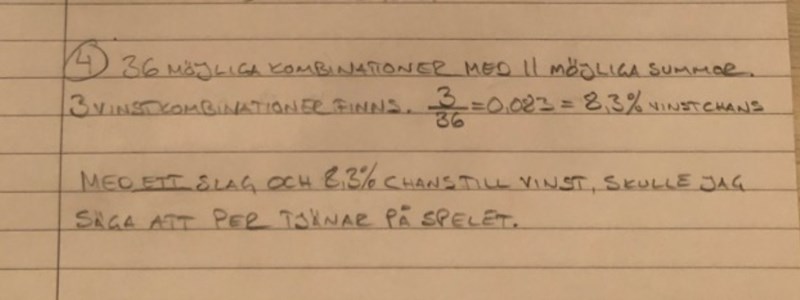 ④ 36 MÖJLIGA KOMBINATIONER MED 11 MÖJLIGA SUMMOR.
3 VINSTKOMBINATIONER FINNS. 3/36 = 0,083 = 8,3% VINSTCHANS
MED ETT SLAG OCH 8,3% CHANS TILL VINST, SKULLE JAG
SÄGA ATT PER TJÄNAR PÅ SPELET.